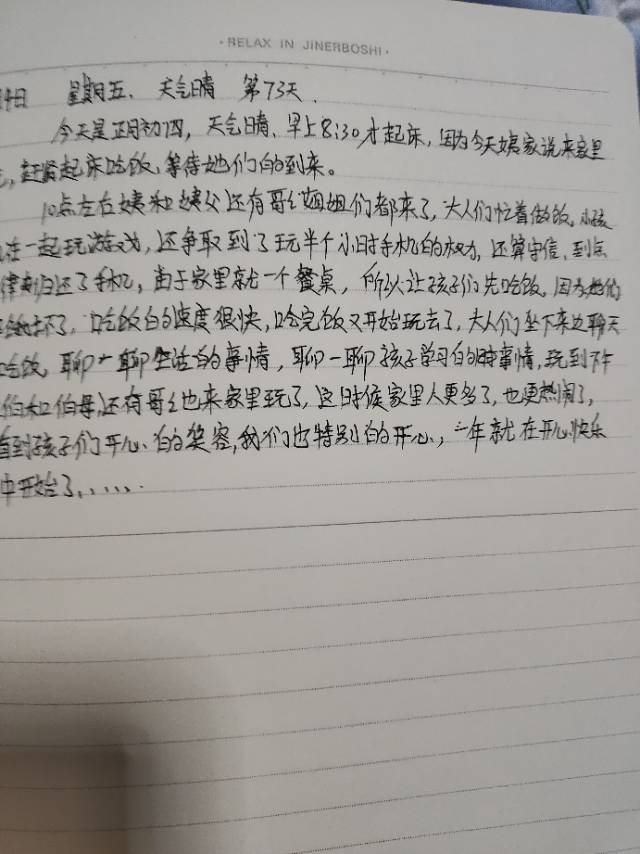 · RELAX IN JINERBOSHI ·
日 星期五、天气晴 第73天.
今天是正月初四，天气晴、早上8:30才起床，因为今天姨家说来家里
，赶紧起床吃饭，等待她们的到来。
10点左右姨和姨父还有哥哥姐姐们都来了，大人们忙着做饭。小孩
在一起玩游戏，还争取到了玩半个小时手机的权力，还算守信、到点
归还了手机，由于家里就一个餐桌，所以让孩子们先吃饭。因为她们
坏了，吃饭的速度很快，吃完饭又开始玩去了，大人们坐下来边聊天
吃饭。聊一聊生活的事情，聊一聊孩子学习的事情，玩到下午
伯和伯母还有哥哥也来家里玩了，这时候家里人更多了，也更热闹了，
看到孩子们开心的笑容，我们也特别的开心，一年就在开心快乐
中开始了......